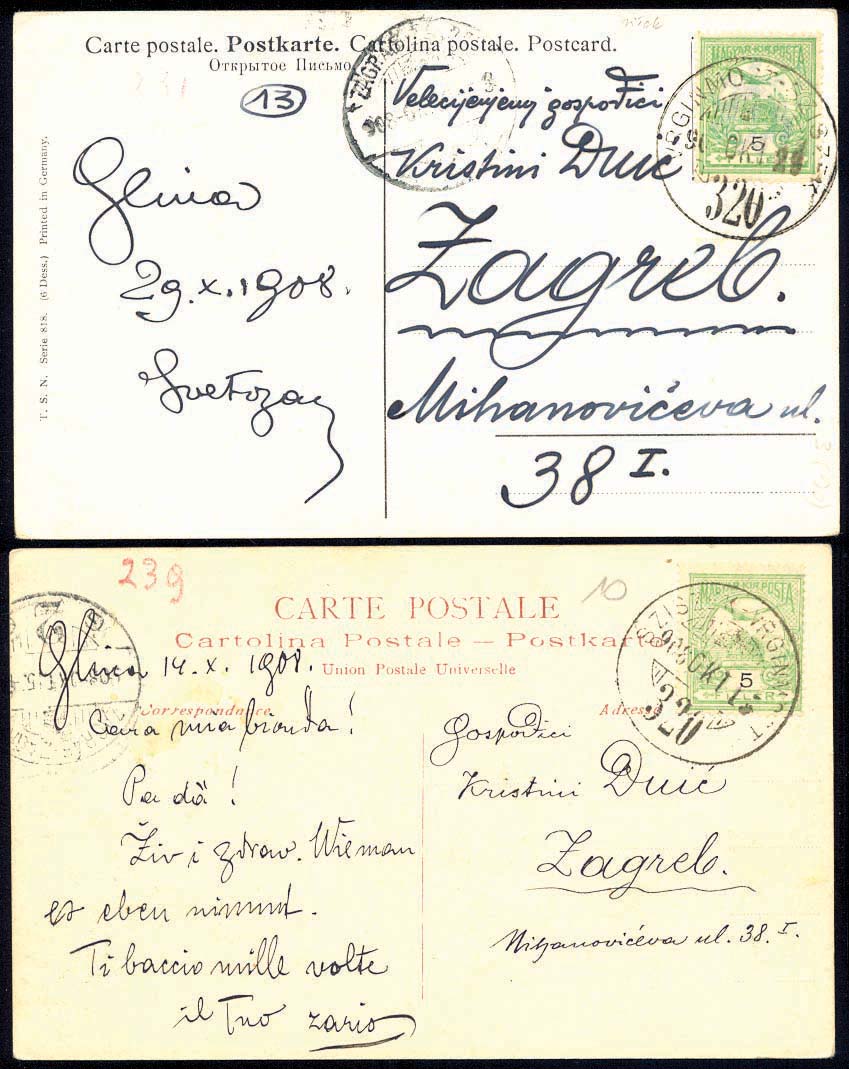 Carte postale. Postkarte. Cartolina postale. Postcard.
Открытое Письмо
13
T. S. N. Serie 818. (6 Dess.) Printed in Germany.
Glina
29.x.1908.
Svetozar
ZAGRAB
MAGYAR KIR. POSTA
5
VRGINMO
SZISZEK
320
Velecijenjenoj gospođici
Kristini Duić
Zagreb.
Mihanovićeva ul.
38 I.
239
10
CARTE POSTALE
Cartolina Postale — Postkarte
Union Postale Universelle
Correspondance
Adresse
MAGYAR KIR. POSTA
5
SZISZEK-VRGINMOST
908 OKT 14
320
Glina 14.x.1908.
Cara mia bionda!
Pa dà!
Živ i zdrav. Wie man
es eben nimmt.
Ti baccio mille volte
il Tuo zario
Gospođici
Kristini Duić
Zagreb.
Mihanovićeva ul. 38. I.